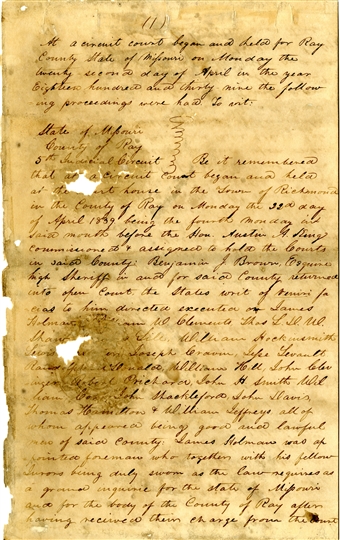 (1)
At a circuit court began and held for Ray
County State of Missouri on Monday the
twenty second day of April in the year
Eighteen hundred and thirty nine the follow
ing proceedings were had To wit.
State of Missouri
County of Ray
5th Judicial Circuit Be it remembered
that at a circuit court began and held
at the court house in the Town of Richmond
in the County of Ray on Monday the 22d day
of April 1839 being the fourth Monday in
said month before the Hon. Austin A King
Commissioned & assigned to hold the Courts
in said County Benjamin J Brown, Esquire
high Sheriff in and for said County returned
into open Court the States writ of venire fa
cias to him directed executed on James
Holman William W. Clements Thos L. D. W.
Shaw William Hockensmith
on Joseph Cravin Jesse Levault
William Hill John Cle
Prichard, John H Smith Wil
liam John Shackleford John Davis
Thomas Hamilton & William Jeffreys all of
whom appeared being good and lawful
men of said County. James Holman was ap
pointed foreman who together with his fellow
Jurors being duly sworn as the law requires as
a grand inquire for the state of Missouri
and for the body of the County of Ray after
having received their charge from the court